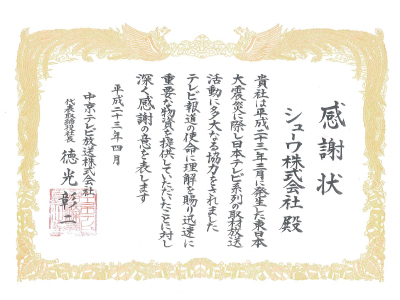 感謝状
シューワ株式会社 殿
貴社は平成二十三年三月に発生した東日本
大震災に際し日本テレビ系列の取材放送
活動に多大なる協力をされました
テレビ報道の使命に理解を賜り迅速に
重要な物資を提供していただいたことに対し
深く感謝の意を表します
平成二十三年四月
中京テレビ放送株式会社
代表取締役社長 徳光彰二